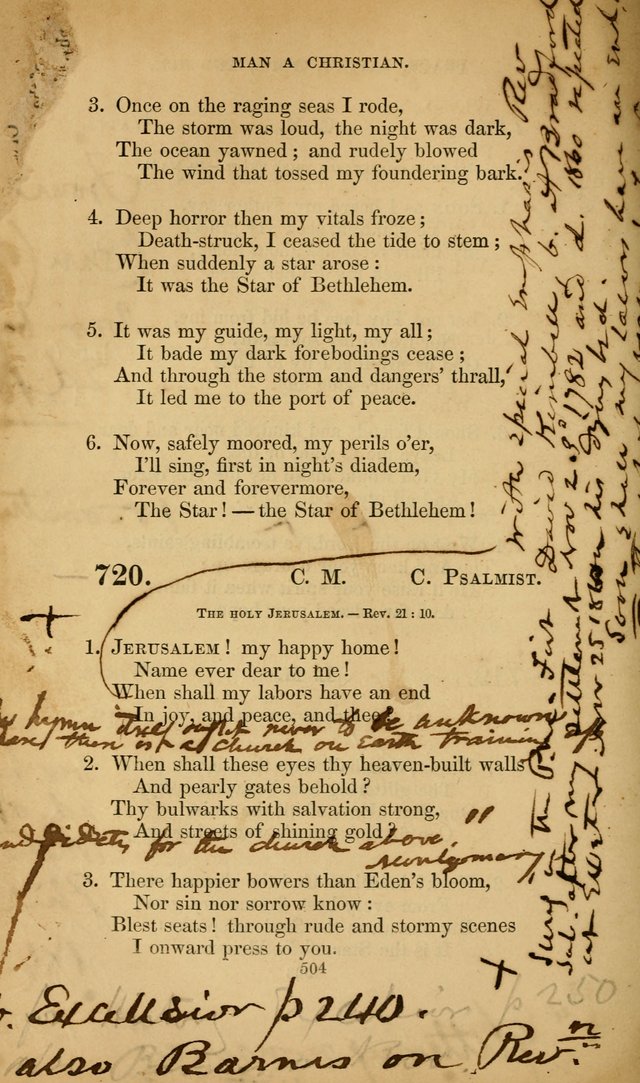 MAN A CHRISTIAN.
3. Once on the raging seas I rode,
The storm was loud, the night was dark,
The ocean yawned; and rudely blowed
The wind that tossed my foundering bark.
4. Deep horror then my vitals froze;
Death-struck, I ceased the tide to stem;
When suddenly a star arose:
It was the Star of Bethlehem.
5. It was my guide, my light, my all;
It bade my dark forebodings cease;
And through the storm and dangers' thrall,
It led me to the port of peace.
6. Now, safely moored, my perils o'er,
I'll sing, first in night's diadem,
Forever and forevermore,
The Star!—the Star of Bethlehem!
720. C. M. C. PSALMIST.
THE HOLY JERUSALEM.—REV. 21:10.
1. JERUSALEM! my happy home!
Name ever dear to me!
When shall my labors have an end
In joy, and peace, and thee?
hymn ought never to be unknown
there is a church on Earth training up
2. When shall these eyes thy heaven-built walls
And pearly gates behold?
Thy bulwarks with salvation strong,
And streets of shining gold?
for the church above."
Montgomery
3. There happier bowers than Eden's bloom,
Nor sin nor sorrow know:
Blest seats! through rude and stormy scenes
I onward press to you.
504
Excelsior p 240.
p 250
also Barnes on Revn
with special Emphasis Rev
David Kimball b. at Bradford
Nov 25 1782 and d. 1860 repeated
on his dying bed.
Soon shall my labors have an end
Sung in the First
after my settlement
at